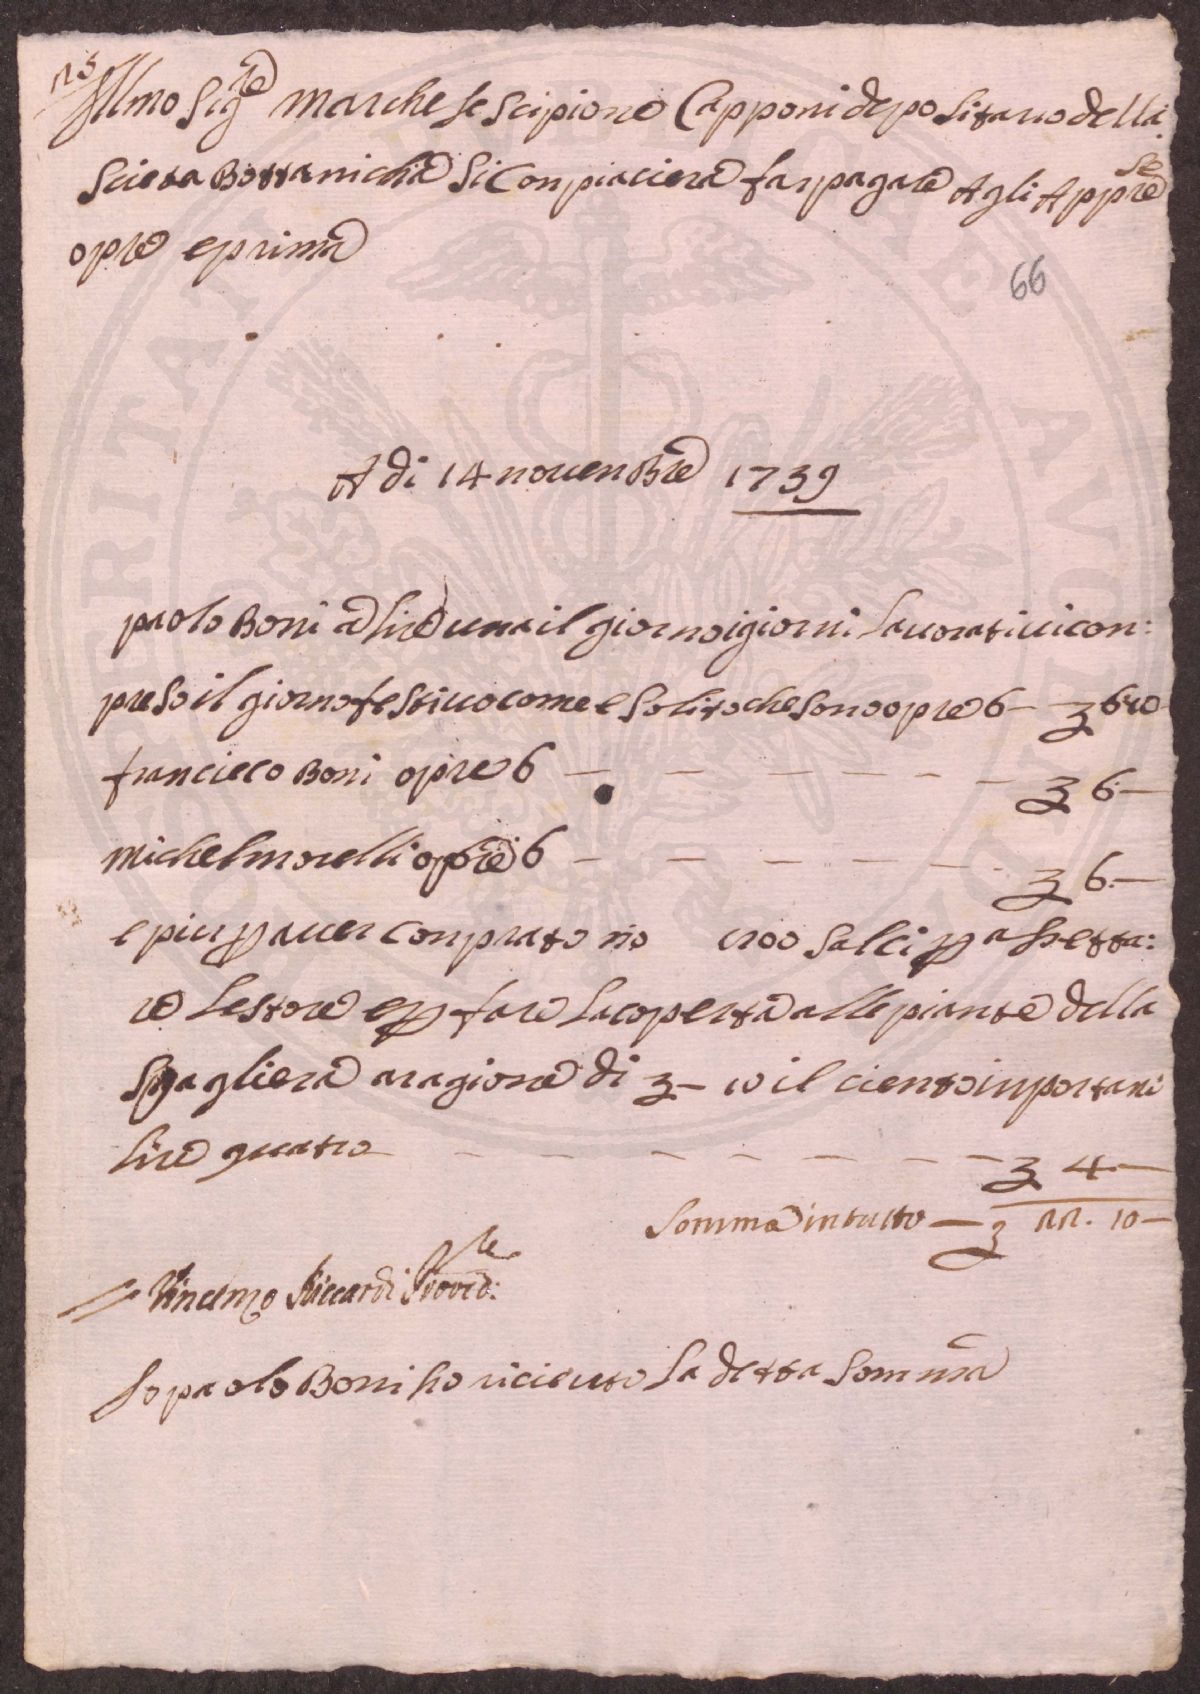 Illmo Sigre Marchese Scipione Capponi depositario della
Scieta Bottanicha Si Conpiacierà far pagare Agli Appre Se
opre e prima
66
A di 14 novenbre 1739
paolo Boni a lire una il giorno i giorni lavorativi con:
preso il giorno festivo come e solito che sono opre 6 — 6 10
francieco Boni opre 6 — — — — — — 6 —
Michel morelli opre 6 — — — — — 6 —
e piu per aver conprato no salci per asetta:
re le store e per fare la coperta alle piante della
Spagliera a ragione di — 10 il ciento inportani
lire quatro — — — — — — — 4 —
Somma in tutto — 22. 10 —
Vincenzo Riccardi Provre:
Io paolo Boni ho riceuto la detta Somma
SOCIETAT
PROSPERITATI
AVGVSTAE